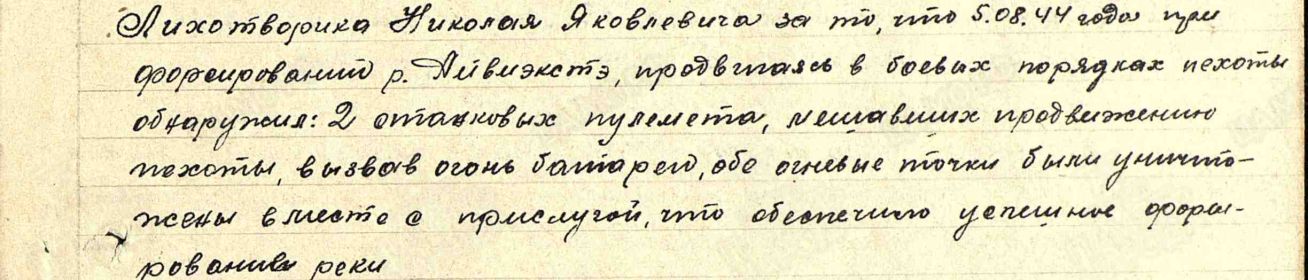 Лихотворика Николая Яковлевича за то, что 5.08.44 года при
форсировании р. Айвиэкстэ, продвигаясь в боевых порядках пехоты
обнаружил: 2 станковых пулемета, мешавших продвижению
пехоты, вызвав огонь батареи, обе огневые точки были уничто-
жены вместе с прислугой, что обеспечило успешное форси-
рование реки